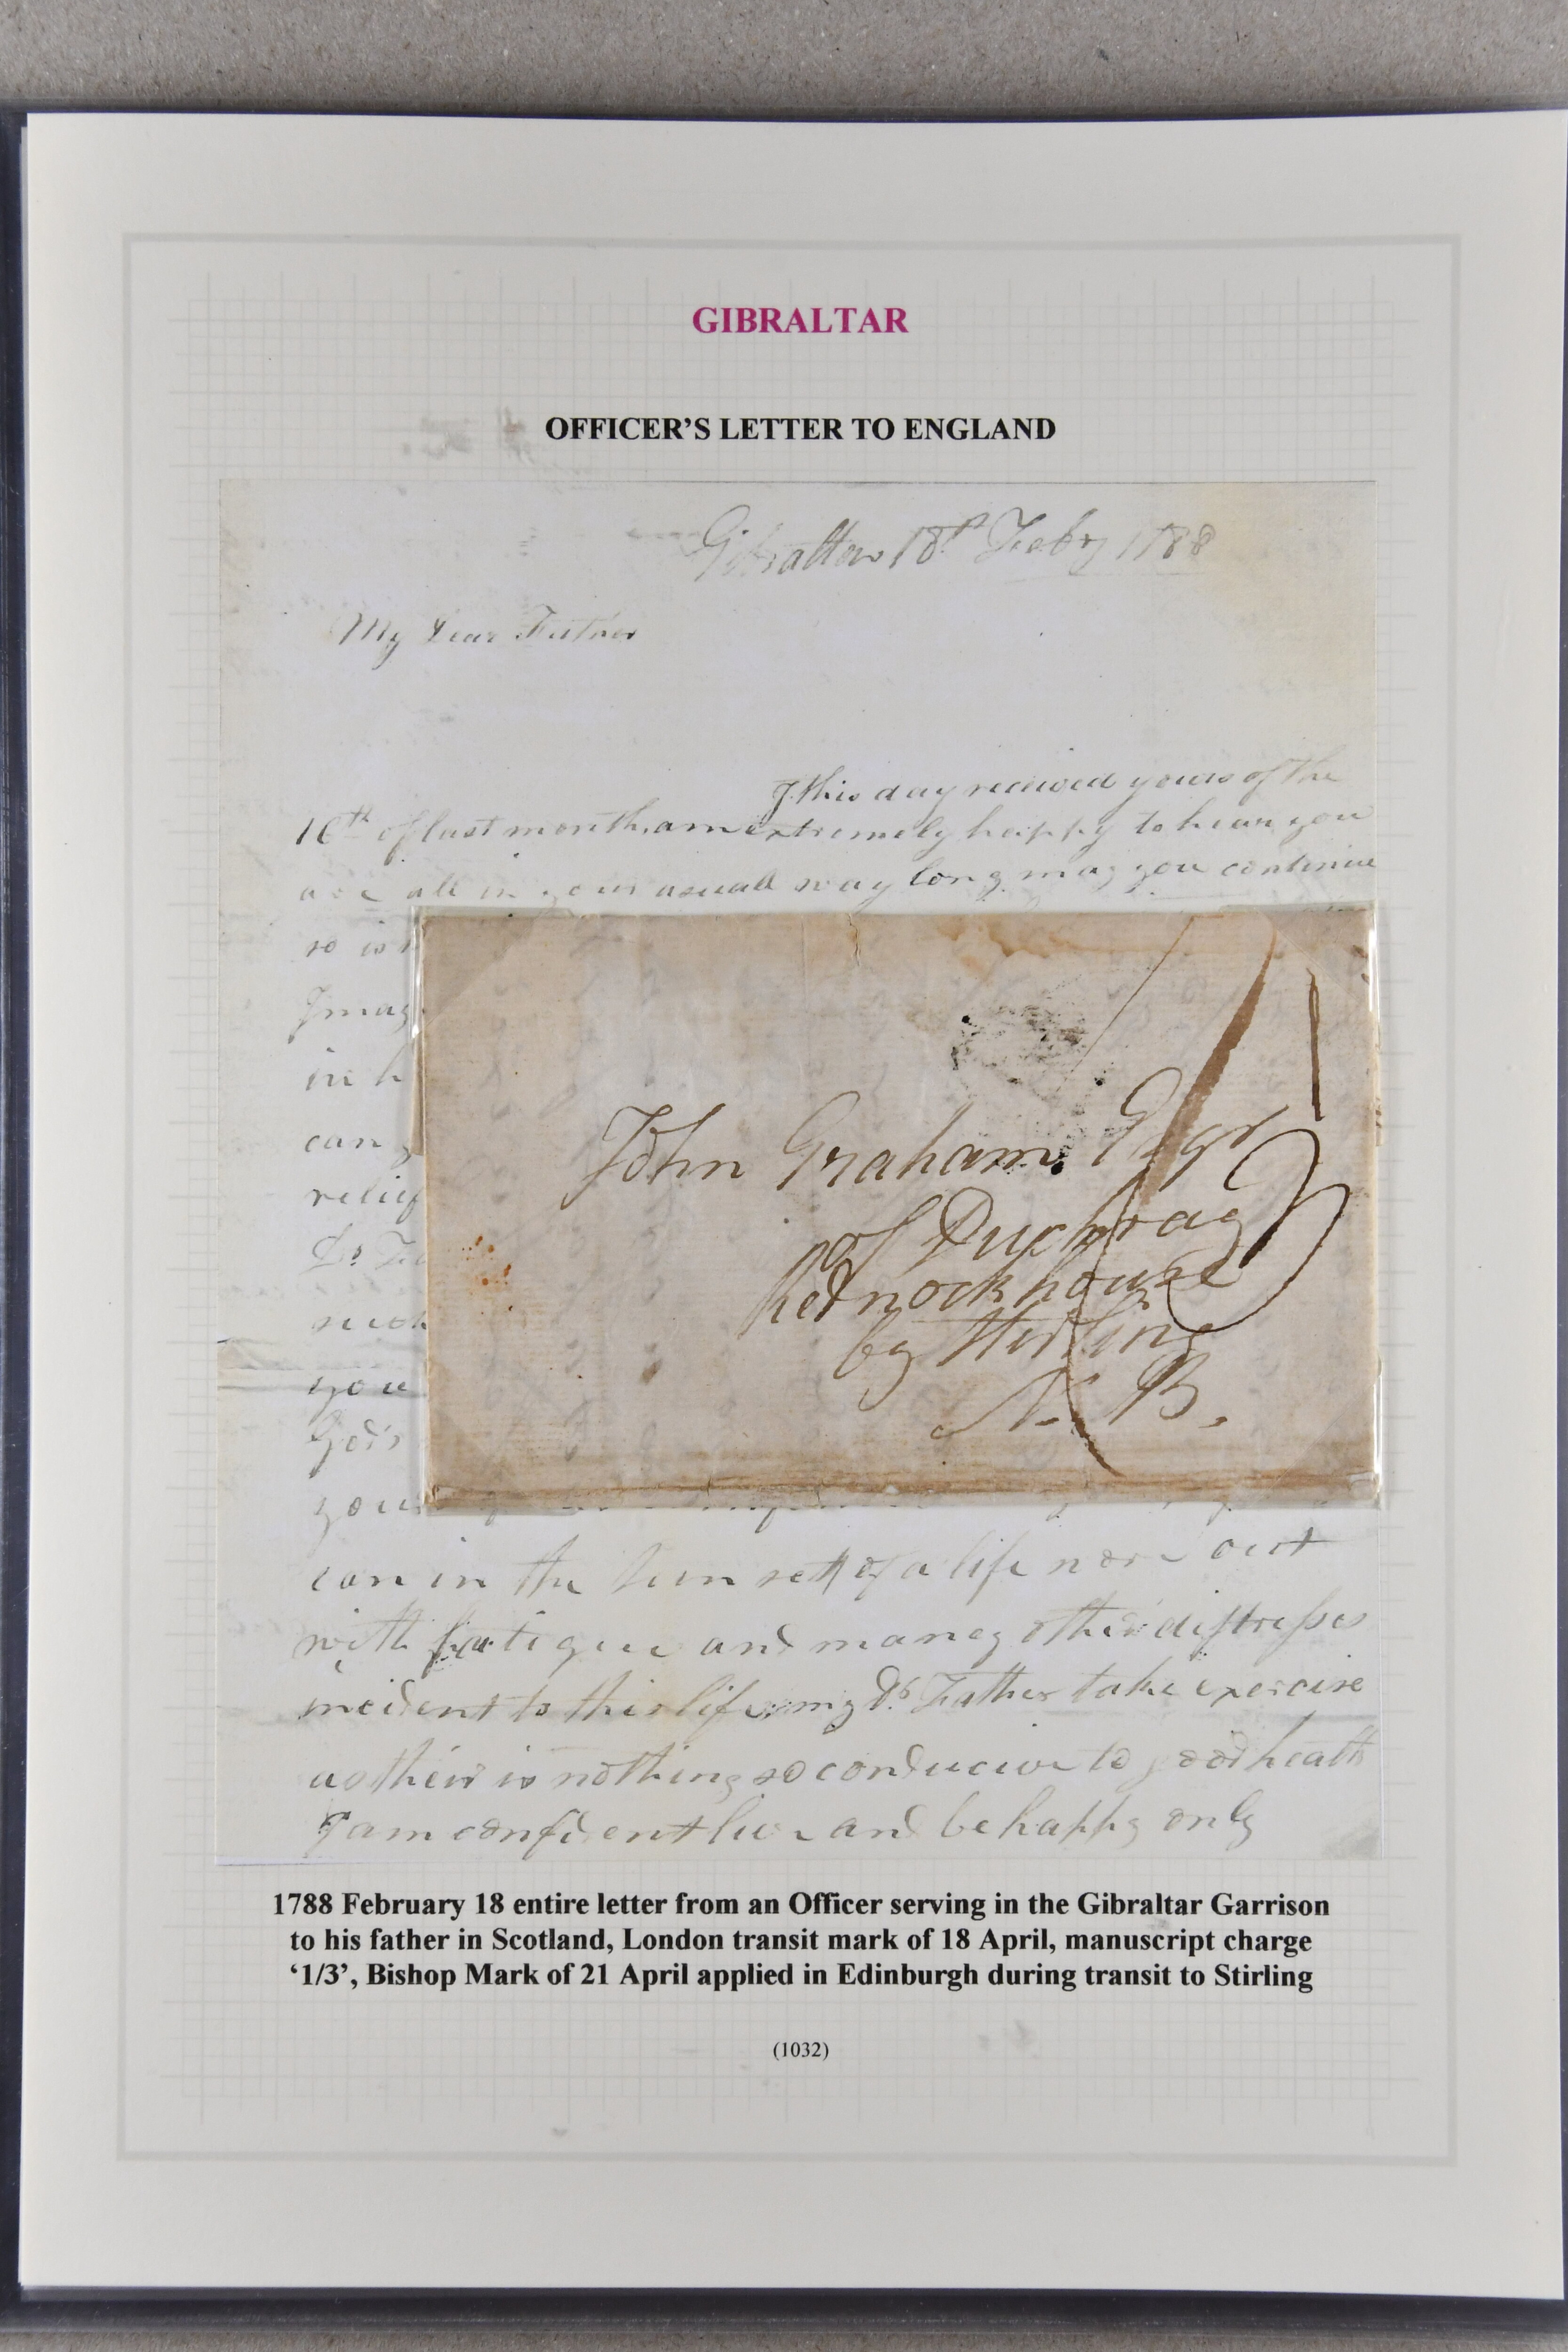 GIBRALTAR
OFFICER'S LETTER TO ENGLAND
Gibraltar 18th Feby 1788
My Dear Father
I this day received yours of the
16th of last month, am extremely happy to hear you
are all in your usuall way long may you continue
so is
Imag
in h
can
relief
Dr Fa
such
you
God's
your
can in the Sun sett of a life wore out
with fatigue and maney other distresses
incident to this life, my Dr. Father take exercise
as their is nothing so conducive to good health
I am confident live and be happy only
John Graham Esqr
of Duchray
Rednockhouse
by Stirling
N. B.
1/3
1788 February 18 entire letter from an Officer serving in the Gibraltar Garrison
to his father in Scotland, London transit mark of 18 April, manuscript charge
‘1/3’, Bishop Mark of 21 April applied in Edinburgh during transit to Stirling
(1032)